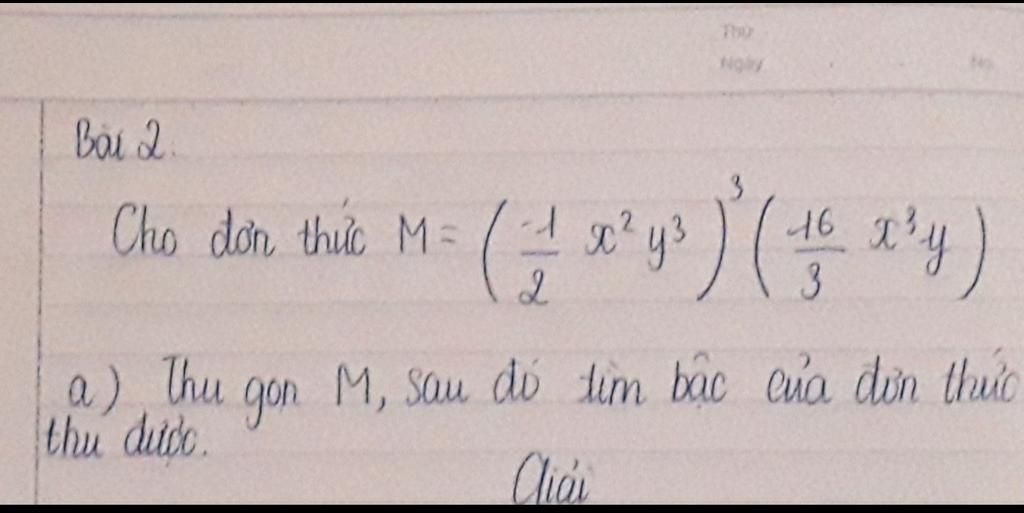 Thứ
Ngày No.
Bài 2.
Cho đơn thức M = (-1/2 x² y³)³ (-16/3 x³y)
a) Thu gọn M, sau đó tìm bậc của đơn thức
thu được.
Giải